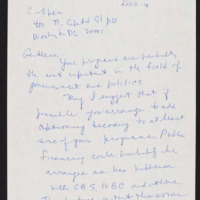 C-Span
400 N. Capitol St NW
Washington DC 20001
Gentlemen
Your programs are probably
the most important in the field of
government and politics.
May I suggest that if
possible you arrange to add
optioning to at least
one of your programs. Public
financing could probably be
arranged as has
with CBS, NBC and others